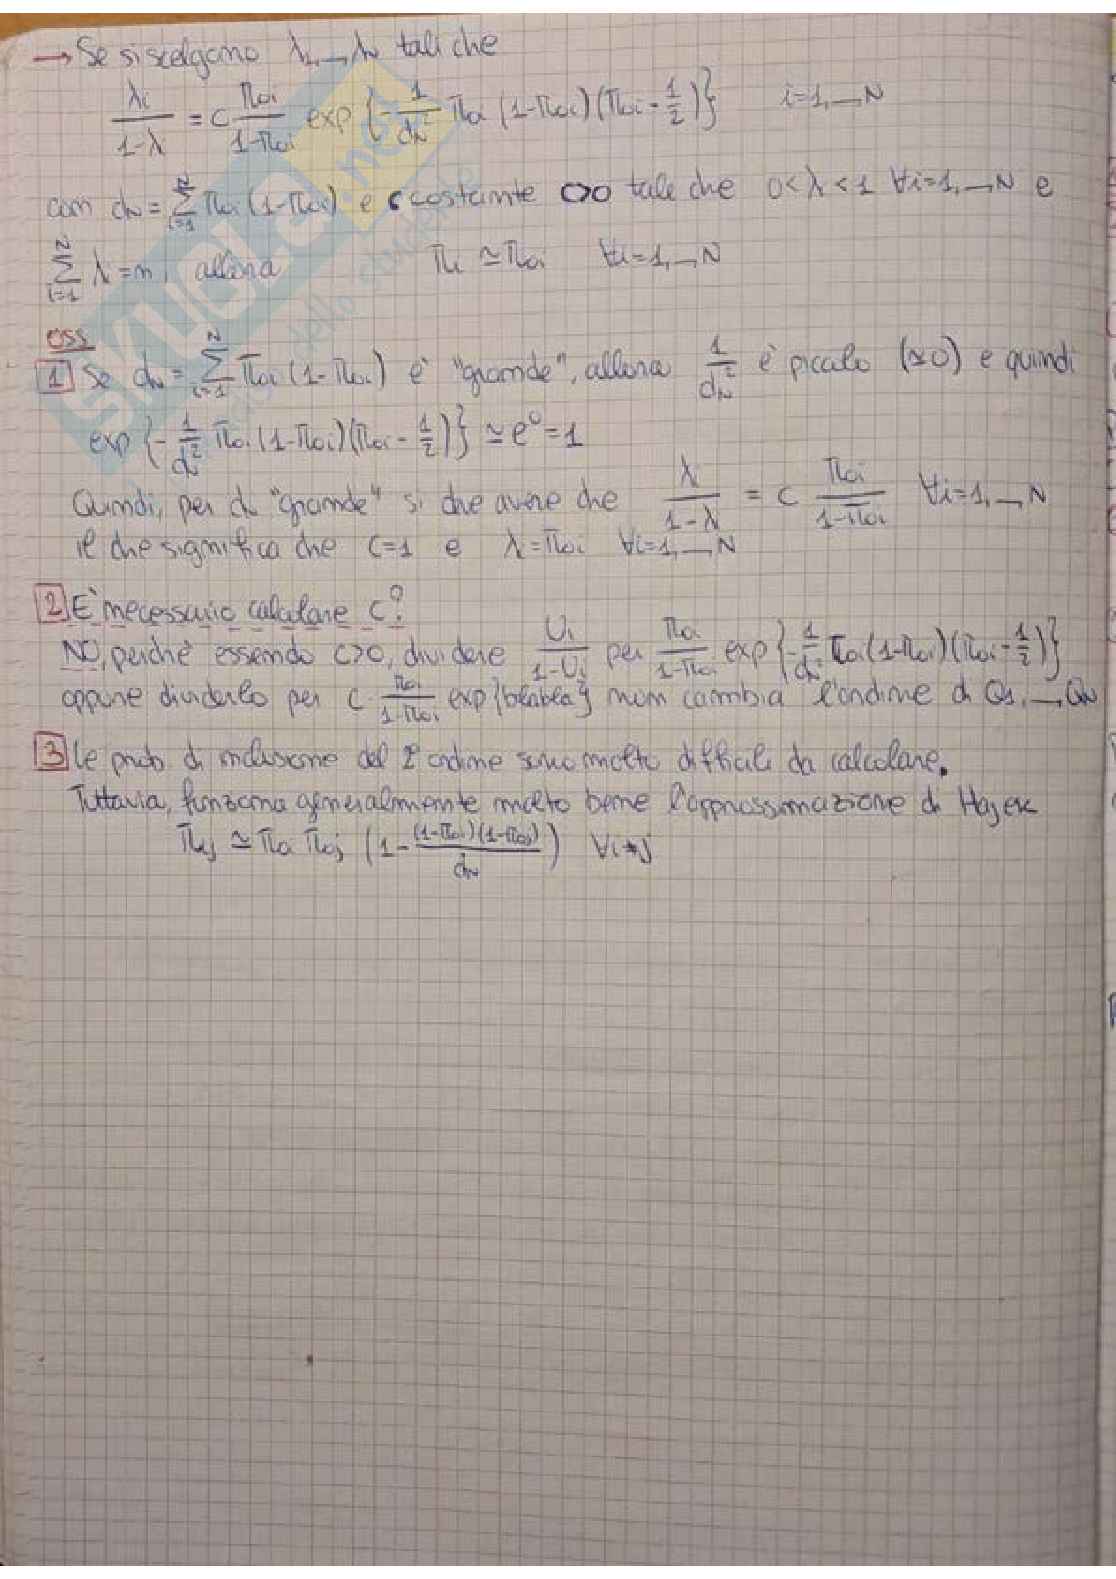 → Se si scelgono λ1, ..., λN tali che
λi / (1-λi) = C π0i / (1-π0i) exp{-1/dN² π0i (1-π0i)(π0i - 1/2)} i=1, ..., N
con dN = Σ_{i=1}^{N} π0i (1-π0i) e C costante C>0 tale che 0<λi<1 ∀i=1, ..., N e
Σ_{i=1}^{N} λi = n, allora πi ≃ π0i ∀i=1, ..., N
OSS
1 Se dN = Σ_{i=1}^{N} π0i (1-π0i) è "grande", allora 1/dN² è piccolo (≃0) e quindi
exp{-1/dN² π0i (1-π0i)(π0i - 1/2)} ≃ e⁰ = 1
Quindi, per dN "grande" si deve avere che λi / (1-λi) = C π0i / (1-π0i) ∀i=1, ..., N
il che significa che C=1 e λi=π0i ∀i=1, ..., N
2 È necessario calcolare C?
NO, perchè essendo C>0, dividere Ui / (1-Ui) per π0i / (1-π0i) exp{-1/dN² π0i (1-π0i)(π0i - 1/2)}
oppure dividerlo per C · π0i / (1-π0i) exp{blabla} non cambia l'ordine di Q1, ..., QN
3 Le prob di inclusione del 2° ordine sono molto difficili da calcolare.
Tuttavia, funziona generalmente molto bene l'approssimazione di Hajek
πij ≃ π0i π0j (1 - (1-π0i)(1-π0j) / dN) ∀i≠j
SKUOLA.net